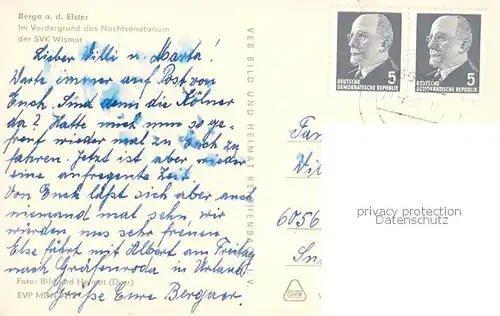 Berga a. d. Elster
Im Vordergrund das Nachtsanatorium
der SVK Wismut
Lieber Willi u. Marta!
Warte immer auf Post von
Euch. Sind denn die Kölner
da? Hatte mich nun so ge-
freut wieder mal zu Euch zu
fahren. Jetzt ist aber wieder
eine aufregente Zeit.
Von Euch läßt sich aber auch
niemand mal sehn, wir
würden uns sehr freuen.
Else fährt mit Albert am Freitag
nach Gräfenroda in Urlaub.
Foto: Bild und Heimat (Darr)
EVP MDN
Grüße Eure Bergaer.
VEB BILD UND HEIMAT REICHENBACH I. V.
5
DEUTSCHE
DEMOKRATISCHE REPUBLIK
5
DEUTSCHE
DEMOKRATISCHE REPUBLIK
Fam
6056
privacy protection
Datenschutz